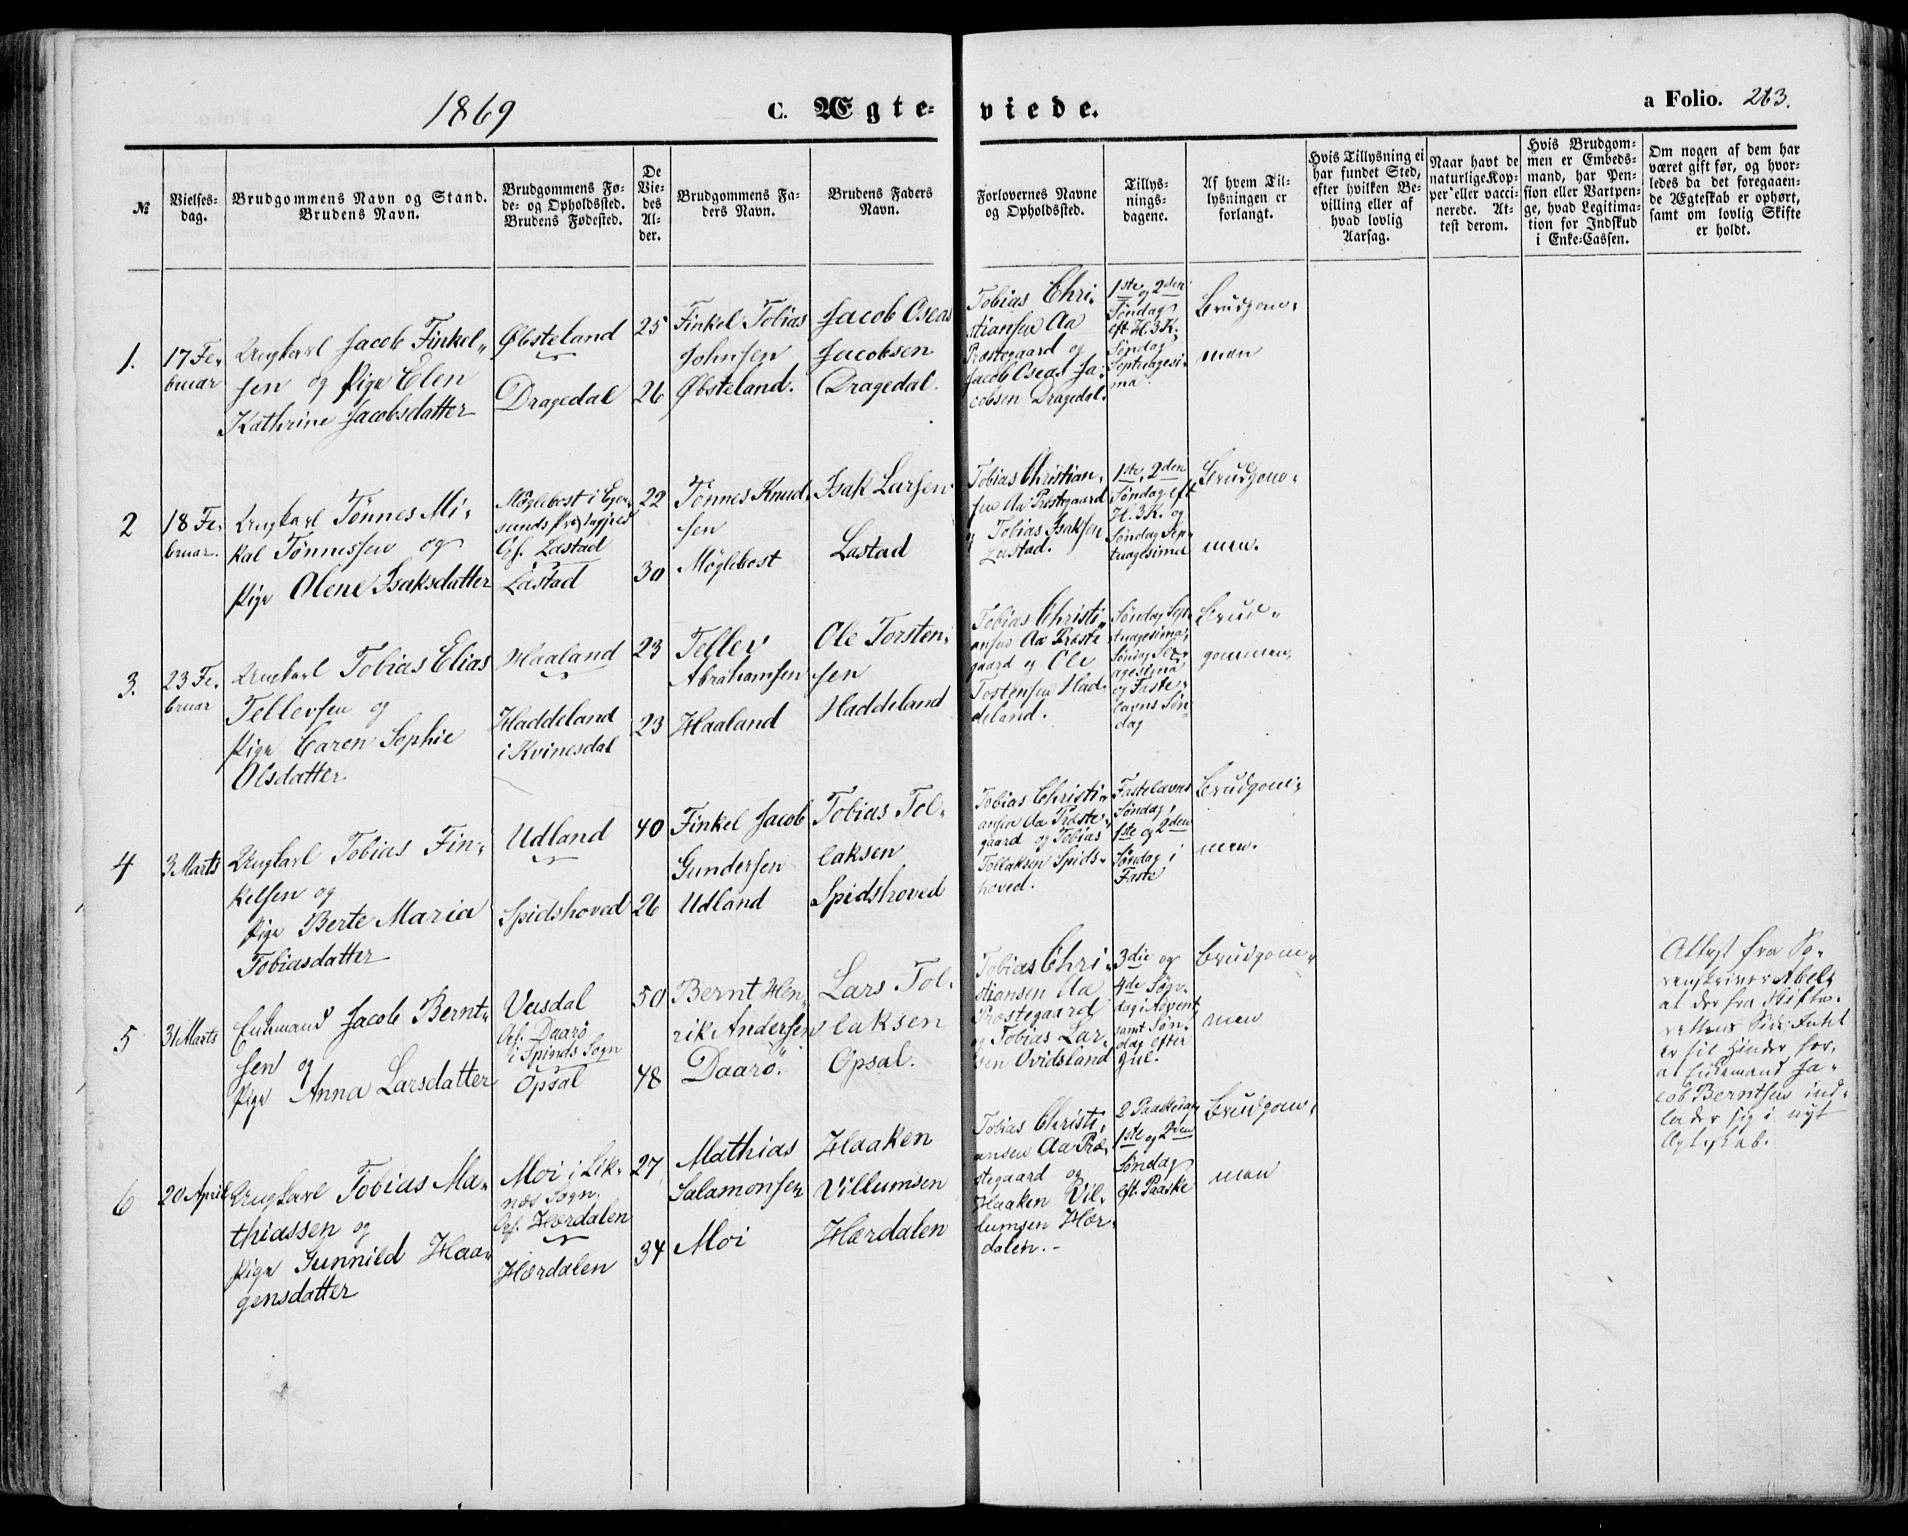 1869
C. Ægte-
viede.
a Folio. 263.
№
Vielses-
dag.
Brudgommens Navn og Stand.
Brudens Navn.
Brudgommens Fø-
de- og Opholdssted.
Brudens Fødested.
De
Vie-
des
Al-
der.
Brudgommens Fa-
ders Navn.
Brudens Faders
Navn.
Forlovernes Navne
og Opholdssted.
Tillys-
nings-
dagene.
Af hvem Til-
lysningen er
forlangt.
Hvis Tillysning ei
har fundet Sted,
efter hvilken Be-
villing eller af
hvad lovlig
Aarsag.
Naar havt de
naturlige Kop-
per eller vacci-
nerede. At-
test derom.
Hvis Brudgom-
men er Embeds-
mand, har Pen-
sion eller Vartpen-
ge, hvad Legitima-
tion for Indskud
i Enke-Cassen.
Om nogen af dem har
været gift før, og hvor-
ledes da det foregaaen-
de Ægteskab er ophørt,
samt om lovlig Skifte
er holdt.
1.
17 Fe-
bruar
Ungkarl Jacob Finkel-
sen og Pige Elen
Kathrine Jacobsdatter
Øbsteland
Dragedal
25
26
Finkel Tobias
Johnsen
Øbsteland.
Jacob Oseas
Jacobsen
Dragedal.
Tobias Chri-
stiansen Aa
Præstegaard og
Jacob Oseas Ja-
cobsen Dragedal.
1ste og 2den
Søndag
eft. H. 3 K.
Søndag
Septuagesi-
ma.
Brudgom-
men
2
18 Fe-
bruar.
Ungkarl Tønnes Mi-
kal Tønnessen og
Pige Olene Isaksdatter
Møglebost i Eger-
sunds Præstegjeld
Of. Lastad
Lastad
22
30
Tønnes Knud-
sen
Møglebost
Isak Larsen
Lastad
Tobias Christian-
sen Aa Præstgaard
og Tobias Isaksen
Lastad.
1ste, 2den
Søndag eft
H. 3 K. og
Søndag Sep-
tuagesima
Brudgom-
men.
3.
23 Fe-
bruar
Ungkarl Tobias Elias
Tellevsen og
Pige Caren Sophie
Olsdatter.
Haaland
Haddeland
i Kvinesdal
23
23
Tellev
Abrahamsen
Haaland
Ole Torsten-
sen
Haddeland
Tobias Christi-
ansen Aa Præste
gaard og Ole
Tostensen Had-
deland.
Søndag Sep-
tuagesima,
Søndag Sex-
agesima
og Faste-
lavns Søn-
dag
Brud-
gommen,
4
3 Marts
Ungkarl Tobias Fin-
kelsen og
Pige Berte Maria
Tobiasdatter
Udland
Spidshoved
40
26
Finkel Jacob
Gundersen
Udland
Tobias Tol-
laksen
Spidshoved
Tobias Christi-
ansen Aa Præste-
gaard og Tobias
Tollaksen Spids-
hoved.
Fastelavns
Søndag,
1ste og 2den
Søndag i
Faste
Brudgom-
men.
5
31 Marts
Enkemand Jacob Bernt-
sen og
Pige Anna Larsdatter
Veisdal
Of. Daarø
i Spinds Sogn
Opsal
50
48
Bernt Hen-
rik Andersen
Daarø.
Lars Tol-
laksen
Opsal.
Tobias Chri-
stiansen Aa
Præstegaard
og Tobias Lar-
sen Ovidsland
3die og
4de Søn-
dag i Advent
samt Søn-
dag efter
Jul.
Brudgom-
men
Attest fra So-
renskriver Abel,
at der fra Skifte-
rettens Side Intet
er til Hinder for,
at Enkemand Ja-
cob Berntsen ind-
lader sig i nyt
Ægteskab.
6
20 April
Ungkarl Tobias Ma-
thiassen og
Pige Gunnild Haa-
gensdatter
Moi i Lik-
næs Sogn.
Of. Hærdalen
Hærdalen
27
34
Mathias
Salamonsen
Moi
Haaken
Villumsen
Hærdalen
Tobias Christi-
ansen Aa Præ-
stegaard og
Haaken Vil-
lumsen Hær-
dalen.-
2 Paaskedag
1ste og 2den
Søndag
eft. Paaske
Brudgom-
men